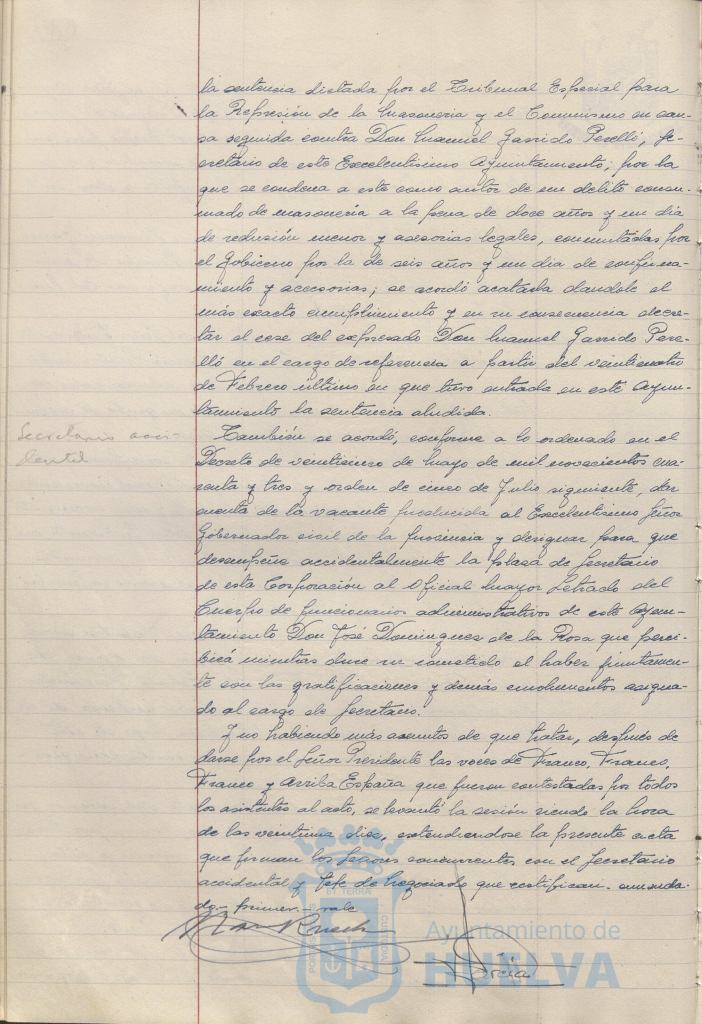 la sentencia dictada por el Tribunal Especial para
la Represión de la Masoneria y el Comunismo en cau-
sa seguida contra Don Manuel Garrido Perelló, Se-
cretario de este Excelentísimo Ayuntamiento; por la
que se condena a este como autor de un delito consu-
mado de masonería a la pena de doce años y un dia
de reclusión menor y asesorias legales, conmutadas por
el Gobierno por la de seis años y un dia de confina-
miento y accesorias; se acordó acatarla dandole el
más exacto cumplimiento y en su consecuencia decre-
tar el cese del expresado Don Manuel Garrido Pere-
lló en el cargo de referencia a partir del veinticuatro
de Febrero último en que tuvo entrada en este Ayun-
tamiento la sentencia aludida.
Secretario acci-
dental
También se acordó, conforme a lo ordenado en el
Decreto de veinticinco de Mayo de mil novecientos cua-
renta y tres y orden de cinco de Julio siguiente, dar
cuenta de la vacante producida al Excelentísimo Señor
Gobernador civil de la provincia y designar para que
desempeñe accidentalmente la plaza de Secretario
de esta Corporación al Oficial Mayor Letrado del
Cuerpo de funcionarios administrativos de este Ayun-
tamiento Don José Dominguez de la Rosa que perci-
birá mientras dure su cometido el haber juntamen-
te con las gratificaciones y demás emolumentos asigna-
do al cargo de Secretario.
Y no habiendo más asuntos de que tratar, después de
darse por el Señor Presidente las voces de Franco, Franco,
Franco y Arriba España que fueron contestadas por todos
los asistentes al acto, se levantó la sesión siendo la hora
de las veintiuna diez, extendiendose la presente acta
que firman los Señores concurrentes con el Secretario
accidental y Jefe de Negociado que certifican. enmenda-
do - primer - vale
Ayuntamiento de
HUELVA